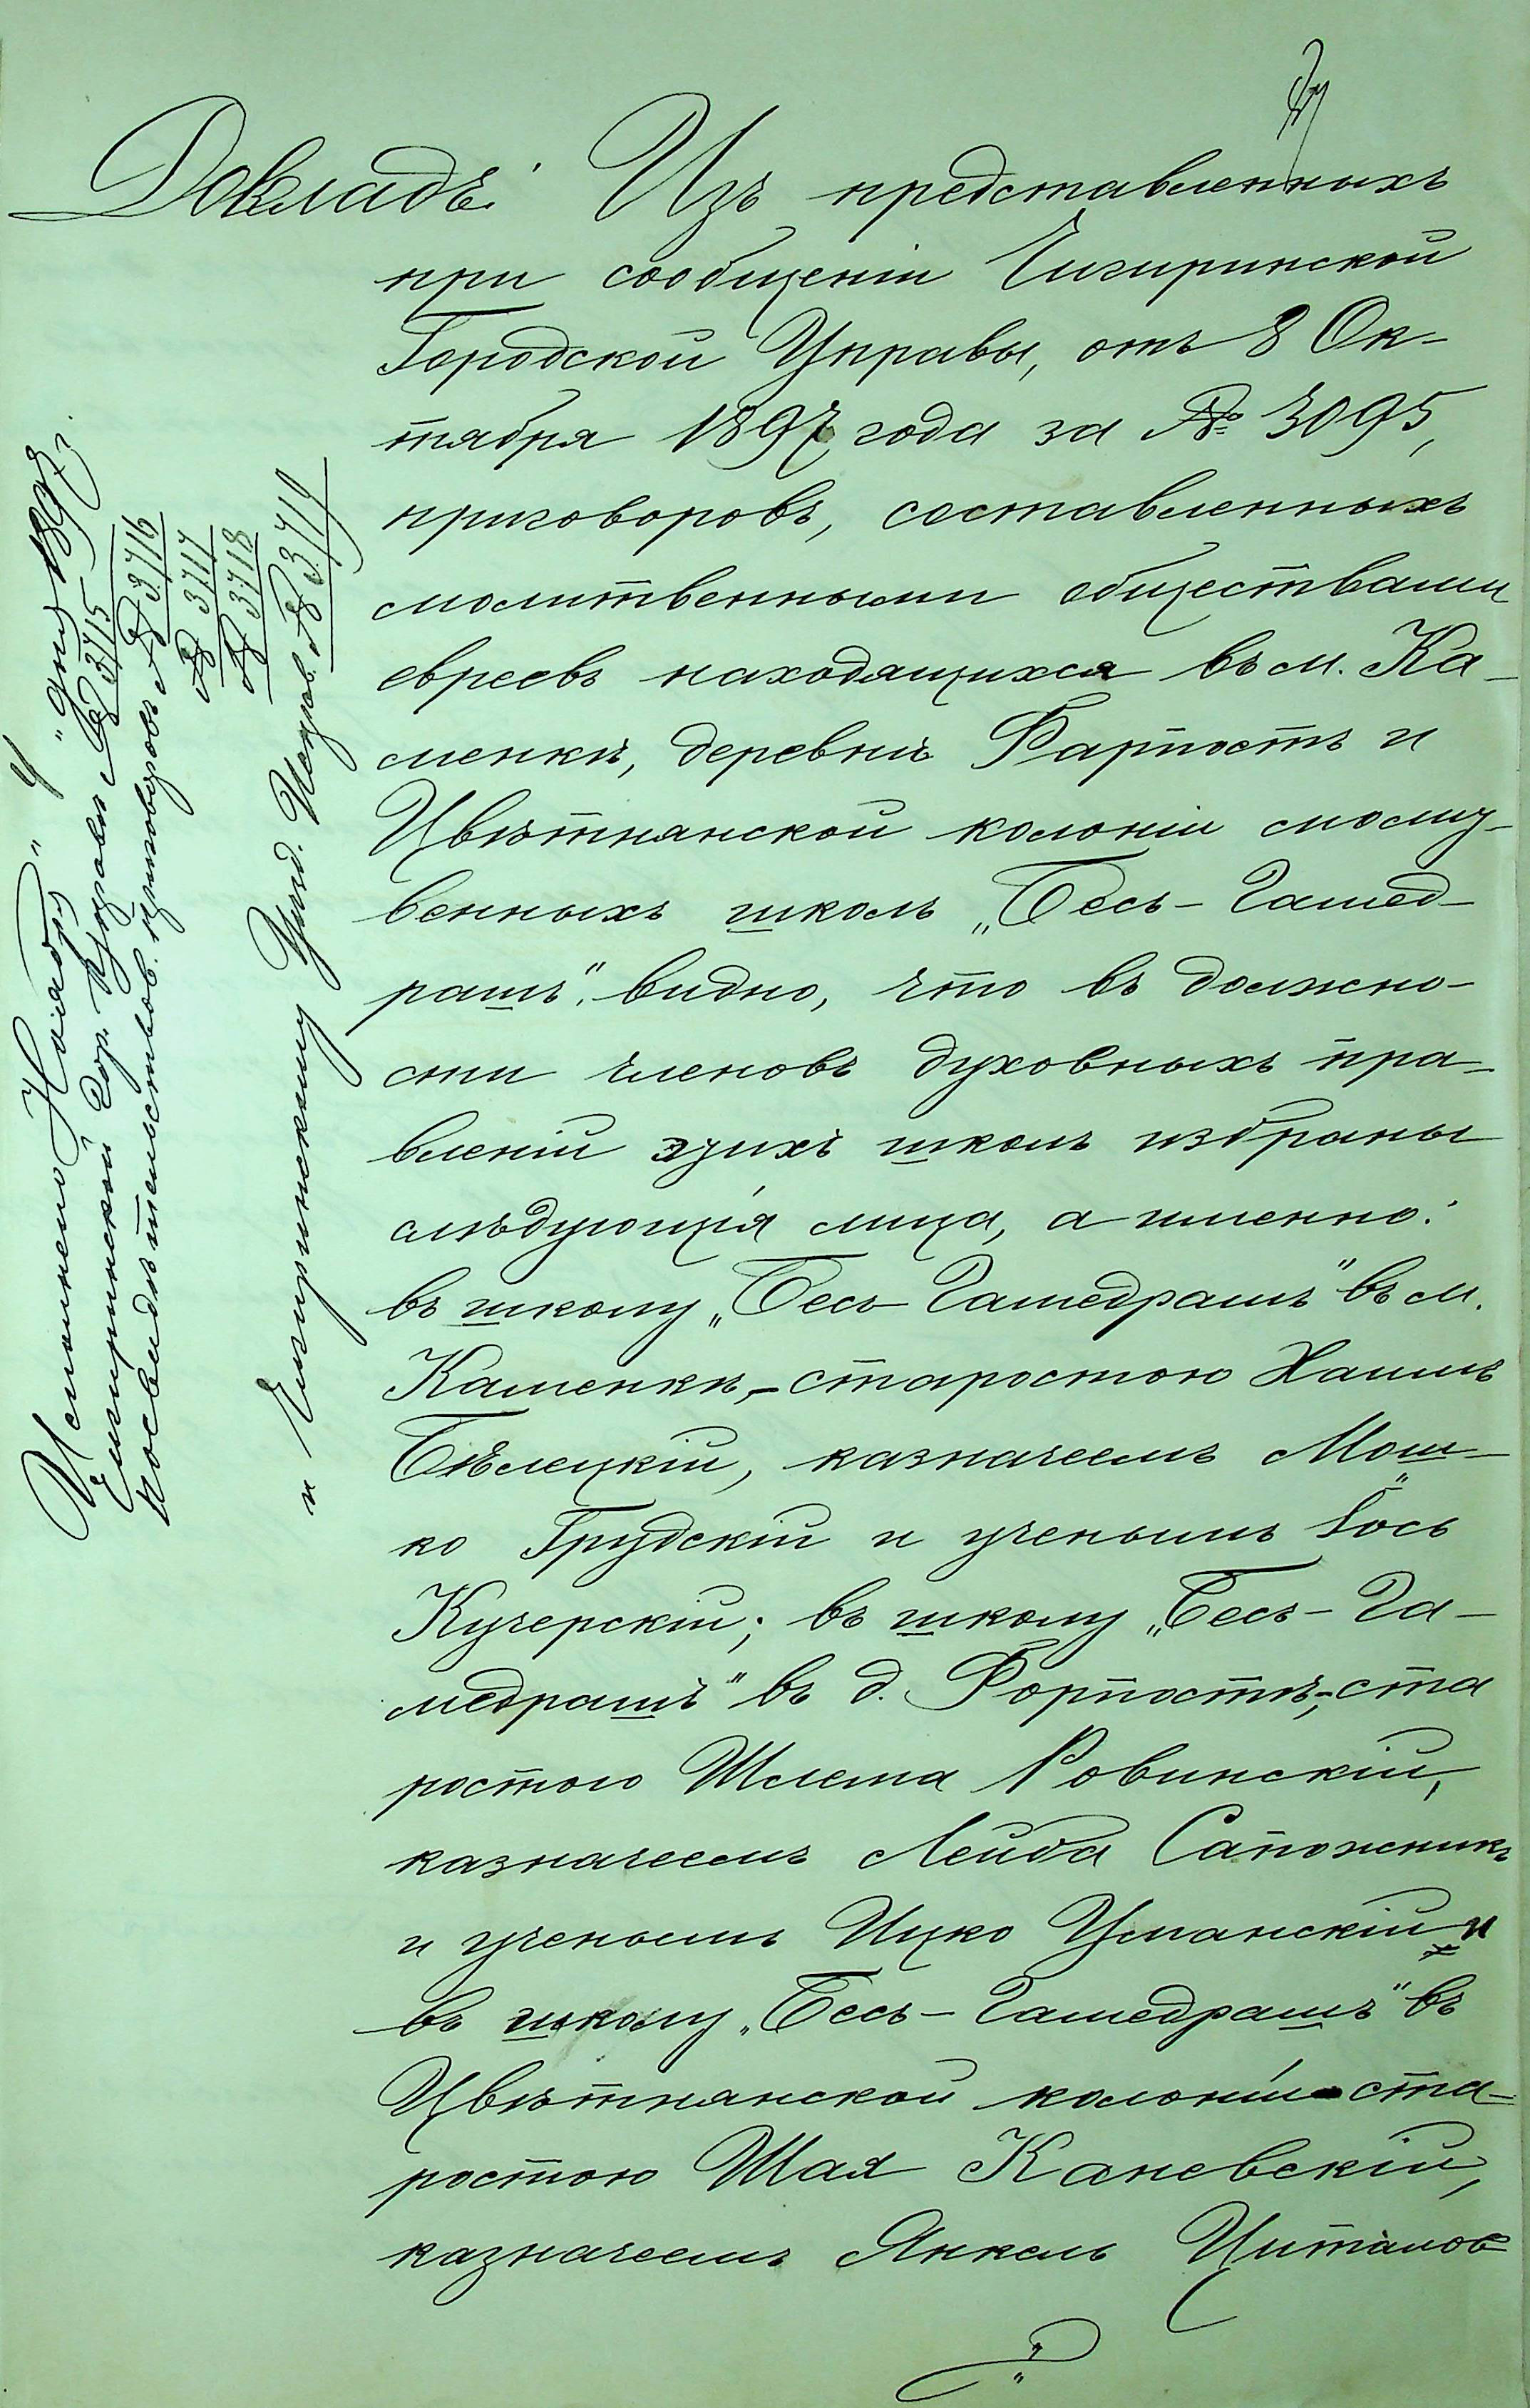 Докладъ. Изъ представленныхъ
при сообщеніи Чигиринской
Городской Управы, отъ 8 Ок-
тября 1897 года за № 3095,
приговоровъ, составленныхъ
молитвенными обществами
евреевъ находящихся въ м. Ка-
менкѣ, деревнѣ Фарпостъ и
Цвѣтнянской колоніи молит-
венныхъ школъ „Бесъ-Гамед-
рашъ“, видно, что въ должно-
сти членовъ духовныхъ пра-
вленій этихъ школъ избраны
слѣдующія лица, а именно:
въ школу „Бесъ-Гамедрашъ“ въ м.
Каменкѣ,-старостою Хаимъ
Бѣлецкій, казначеемъ Мош-
ко Грудскій и ученымъ Іось
Кучерскій; въ школу „Бесъ-Га-
медрашъ“ въ д. Форпостѣ,-ста
ростою Шлема Ровинскій,
казначеемъ Лейба Сапожникъ
и ученымъ Ицко Уманскій и
въ школу „Бесъ-Гамедрашъ“ въ
Цвѣтнянской колоніи-ста-
ростою Шая Каневскій,
казначеемъ Янкель
Исполнено Ноября „4“ дня 1897 г.
Чигиринской Гор. Управѣ № 3715
по свидѣтельствов. приговоровъ № 3716
№ 3717
№ 3718
и Чигиринскому Уѣзд. Исправ. № 3719